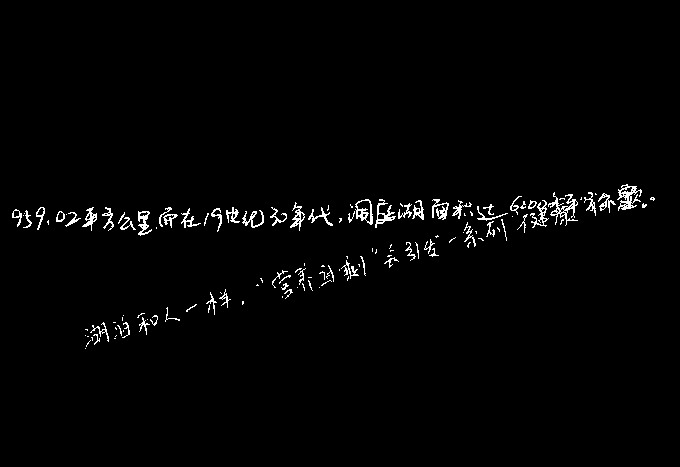 959.02平方公里.而在19世纪30年代,洞庭湖面积达
湖泊和人一样,“营养过剩”会引发一系列不健康